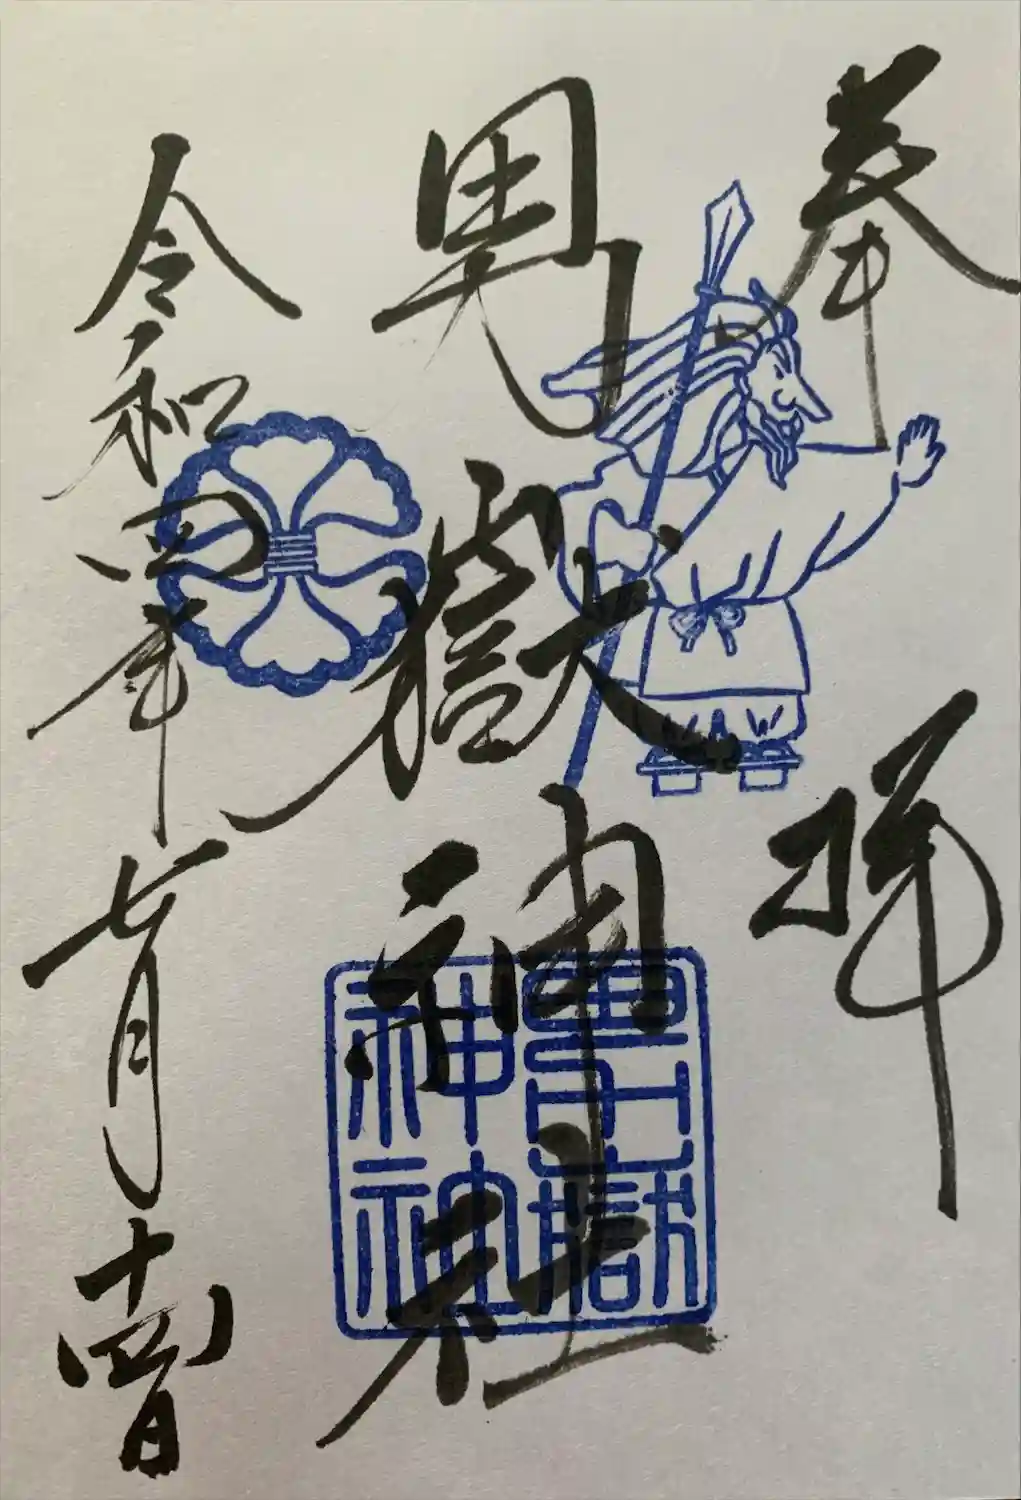 奉拝
男嶽神社
令和四年七月十四日
男嶽
神社